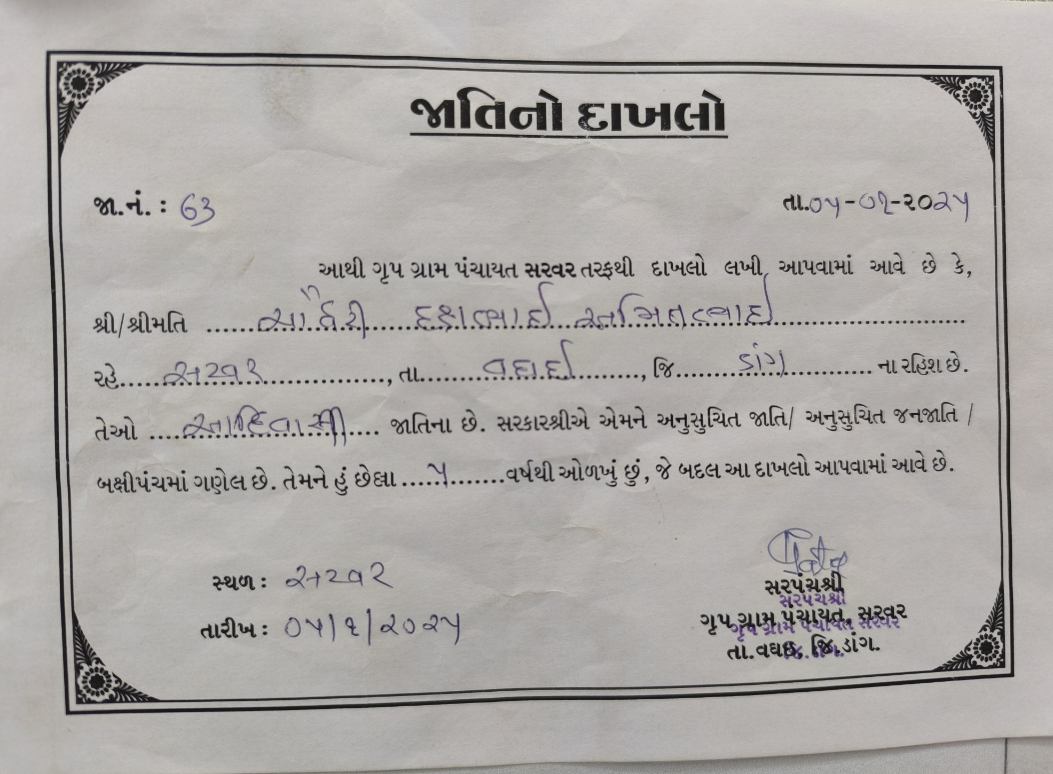 જાતિનો દાખલો
જા.નં. : 63
તા.૦૫-૦૧-૨૦૨૫
આથી ગૃપ ગ્રામ પંચાયત સરવર તરફથી દાખલો લખી આપવામાં આવે છે કે,
શ્રી/શ્રીમતિ ......ચૌધરી દક્ષાભાઈ અમિતભાઈ......
રહે......સરવર......, તા......વઘઈ......, જિ......ડાંગ...... ના રહિશ છે.
તેઓ ......આદિવાસી...... જાતિના છે. સરકારશ્રીએ એમને અનુસુચિત જાતિ/ અનુસુચિત જનજાતિ /
બક્ષીપંચમાં ગણેલ છે. તેમને હું છેલ્લા ......૫......વર્ષથી ઓળખું છું, જે બદલ આ દાખલો આપવામાં આવે છે.
સ્થળ : સરવર
તારીખ : ૦૫/૧/૨૦૨૫
સરપંચશ્રી
સરપંચશ્રી
ગૃપ ગ્રામ પંચાયત, સરવર
ગૃપ ગ્રામ પંચાયત સરવર
તા.વઘઈ, જિ.ડાંગ.
જિ. ડાંગ.